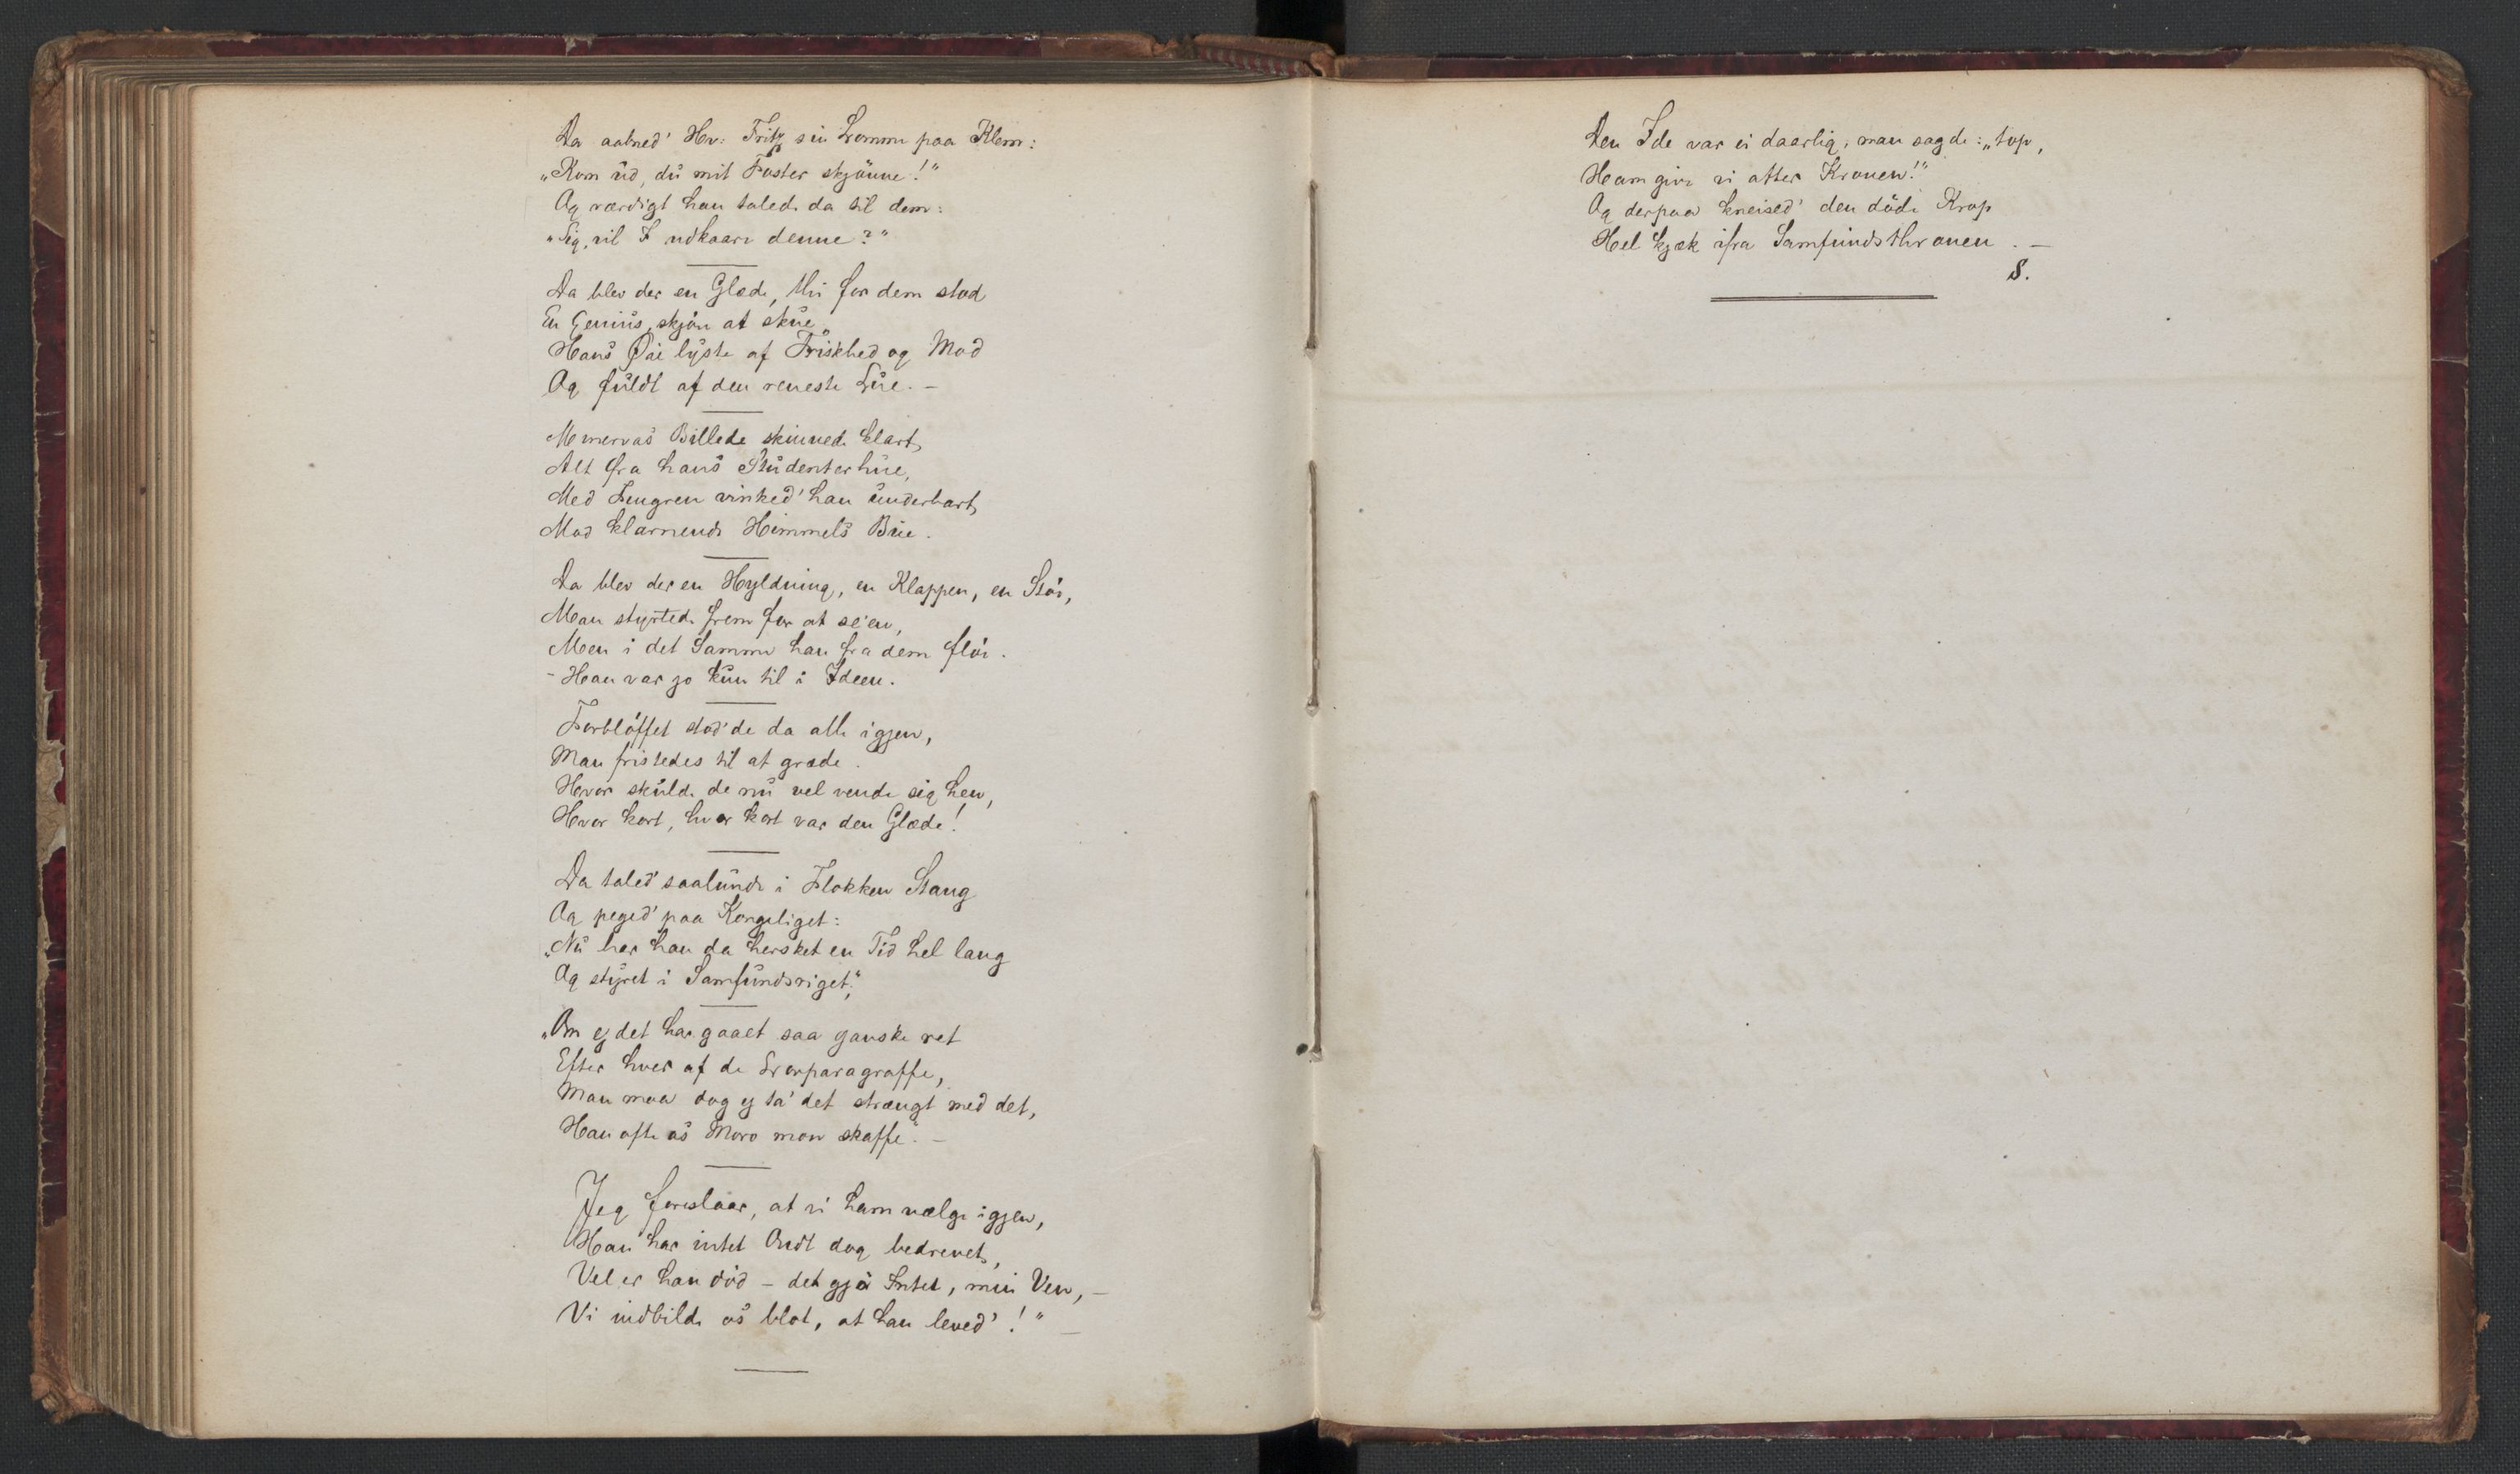 Da aabned' Hr: Fritz sin Lomme paa Klem:
„Kom ud, du mit Foster skjönne!"
Og værdigt han talede da til dem:
„Sig, vil I udkaare denne?"
Da blev der en Glæde, thi for dem stod
En Genius, skjön at skue,
Hans Øie lyste af Friskhed og Mod
Og fuldt af den reneste Lue. –
Minervas Billede skinnede klart,
Alt fra hans Studenterhue,
Med Fingren vinked' han underbart,
Mod klarnende Himmels Bue.
Da blev der en Hyldning, en Klappen, en Stöi,
Man styrtede frem for at se'en,
Men i det Samme han fra dem flöi.
– Han var jo kun til i Ideen.
Forblöffet stod' de da alle igjen,
Man fristedes til at græde.
Hvor skulde de nu vel vende sig hen,
Hvor kort, hvor kort var den Glæde!
Da taled' saalunde i Flokken Stang
Og peged' paa Kongeliget:
„Nu har han da hersket en Tid hel lang
Og styret i Samfundsriget",
„Om ej det har gaaet saa ganske ret
Efter hver af de Lovparagraffe,
Man maa dog ej ta' det strængt med det,
Han ofte os Moro mon skaffe". –
Jeg foreslaar, at vi ham vælge igjen,
Han har intet Ondt dog bedrevet,
Vel er han död – det gjö Intet, min Ven, –
Vi indbilde os blot, at han leved'!" –
Den Ide var ei daarlig; man sagde: „top,
Ham give vi atter Kronen!"
Og derpaa kneised' den döde Krop
Hel kjæk ifra Samfundsthronen. –
S.